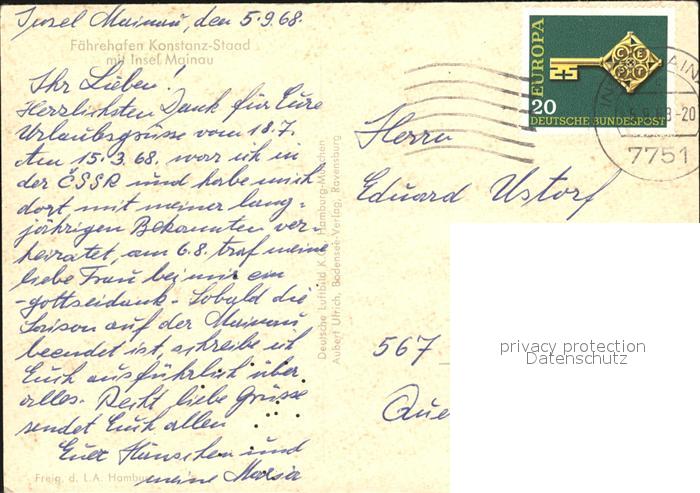 Insel Mainau, den 5.9.68.
Fährehafen Konstanz-Staad
mit Insel Mainau
Ihr Lieben!
Herzlichsten Dank für Eure
Urlaubsgrüsse vom 18.7.
Am 15.3.68. war ich in
der ČSSR und habe mich
dort mit meiner lang-
jährigen Bekannten ver-
heiratet, am 6.8. traf meine
liebe Frau bei mir ein
-gottseidank- Sobald die
Saison auf der Mainau
beendet ist, schreibe ich
Euch ausführlich über
alles. Recht liebe Grüsse
sendet Euch allen
Euer Hänschen und
meine Maria
Freig. d. L.A. Hambu
Deutsche Luftbild K.G. Hamburg-München
Aubert Ullrich, Bodensee-Verlag, Ravensburg
EUROPA
CEPT
20
DEUTSCHE BUNDESPOST
INSEL MAINAU
5.9.68-20
7751
Herrn
Eduard Ustorf
567
Que
privacy protection
Datenschutz